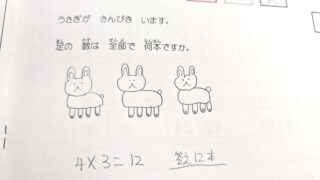 うさぎが さんびき います。
足の 数は 全部で 何本ですか。
4×3=12 答え12本